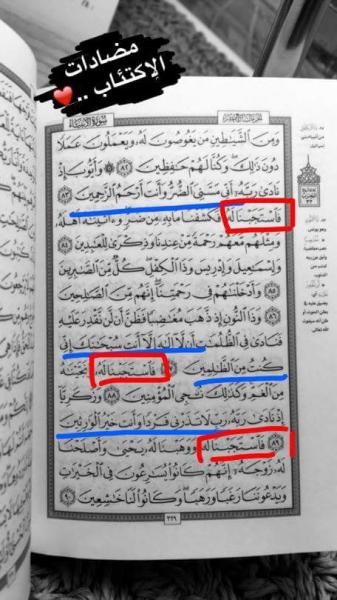 مضادات
الإكتئاب ..
سورة الأنبياء
وَمِنَ ٱلشَّيَٰطِينِ مَن يَغُوصُونَ لَهُۥ وَيَعْمَلُونَ عَمَلًا
دُونَ ذَٰلِكَ ۖ وَكُنَّا لَهُمْ حَٰفِظِينَ ٨٢ ۞ وَأَيُّوبَ إِذْ
نَادَىٰ رَبَّهُۥٓ أَنِّى مَسَّنِىَ ٱلضُّرُّ وَأَنتَ أَرْحَمُ ٱلرَّٰحِمِينَ ٨٣
فَٱسْتَجَبْنَا لَهُۥ فَكَشَفْنَا مَا بِهِۦ مِن ضُرٍّ ۖ وَءَاتَيْنَٰهُ أَهْلَهُۥ
وَمِثْلَهُم مَّعَهُمْ رَحْمَةً مِّنْ عِندِنَا وَذِكْرَىٰ لِلْعَٰبِدِينَ ٨٤
وَإِسْمَٰعِيلَ وَإِدْرِيسَ وَذَا ٱلْكِفْلِ ۖ كُلٌّ مِّنَ ٱلصَّٰبِرِينَ
٨٥ وَأَدْخَلْنَٰهُمْ فِى رَحْمَتِنَآ ۖ إِنَّهُم مِّنَ ٱلصَّٰلِحِينَ
٨٦ وَذَا ٱلنُّونِ إِذ ذَّهَبَ مُغَٰضِبًا فَظَنَّ أَن لَّن نَّقْدِرَ عَلَيْهِ
فَنَادَىٰ فِى ٱلظُّلُمَٰتِ أَن لَّآ إِلَٰهَ إِلَّآ أَنتَ سُبْحَٰنَكَ إِنِّى
كُنتُ مِنَ ٱلظَّٰلِمِينَ ٨٧ فَٱسْتَجَبْنَا لَهُۥ وَنَجَّيْنَٰهُ
مِنَ ٱلْغَمِّ ۚ وَكَذَٰلِكَ نُۨجِى ٱلْمُؤْمِنِينَ ٨٨ وَزَكَرِيَّآ
إِذْ نَادَىٰ رَبَّهُۥ رَبِّ لَا تَذَرْنِى فَرْدًا وَأَنتَ خَيْرُ ٱلْوَٰرِثِينَ
٨٩ فَٱسْتَجَبْنَا لَهُۥ وَوَهَبْنَا لَهُۥ يَحْيَىٰ وَأَصْلَحْنَا
لَهُۥ زَوْجَهُۥٓ ۚ إِنَّهُمْ كَانُوا۟ يُسَٰرِعُونَ فِى ٱلْخَيْرَٰتِ
وَيَدْعُونَنَا رَغَبًا وَرَهَبًا ۖ وَكَانُوا۟ لَنَا خَٰشِعِينَ ٩٠
٣٢٩